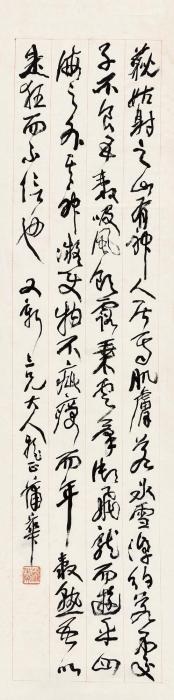 藐姑射之山有神人居焉肌膚若冰雪淖約若處
子不食五穀吸風飲露乘雲氣御飛龍而遊乎四
海之外其神凝使物不疵癘而年穀熟吾以
是狂而不信也 又新兄大人雅正蒲華